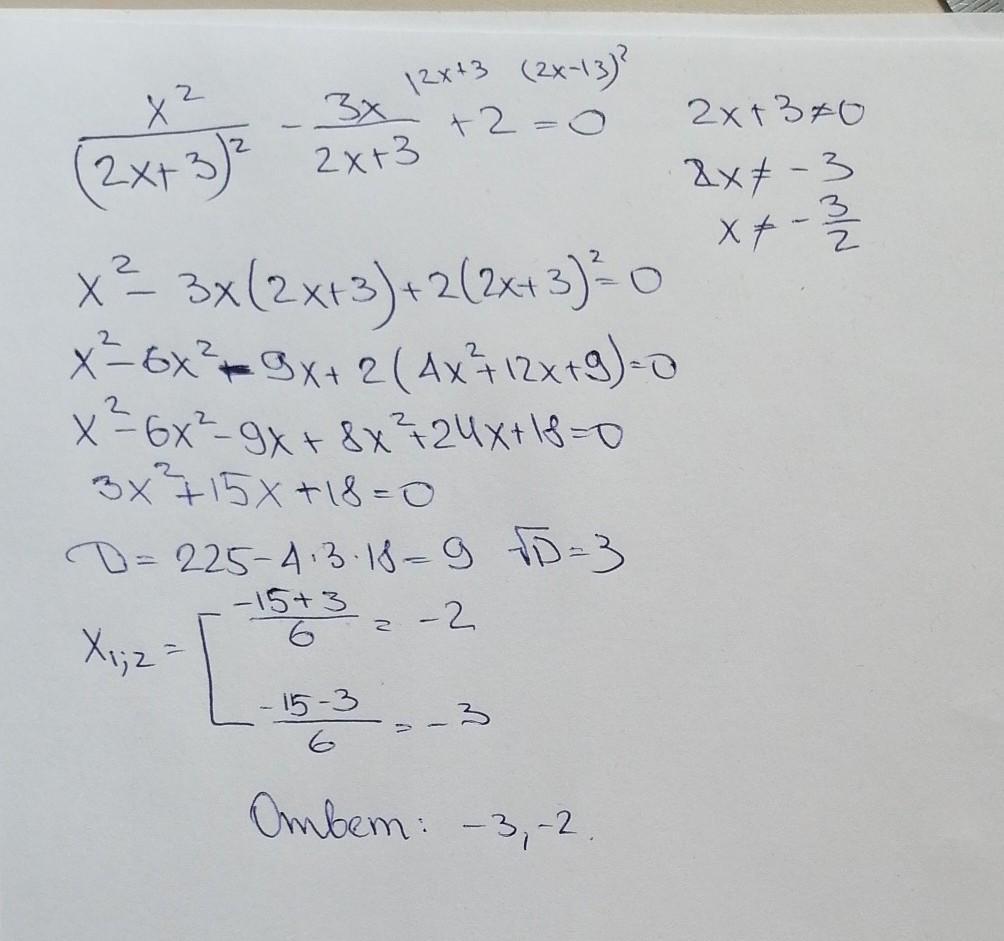 x²/(2x+3)² - 3x/(2x+3) |2x+3 + 2 (2x-13)² = 0
2x+3≠0
2x≠-3
x≠-3/2
x²-3x(2x+3)+2(2x+3)²=0
x²-6x²-9x+2(4x²+12x+9)=0
x²-6x²-9x+8x²+24x+18=0
3x²+15x+18=0
D=225-4·3·18=9 √D=3
x₁;₂=[
-15+3/6=-2
-15-3/6=-3
Ответ: -3,-2.